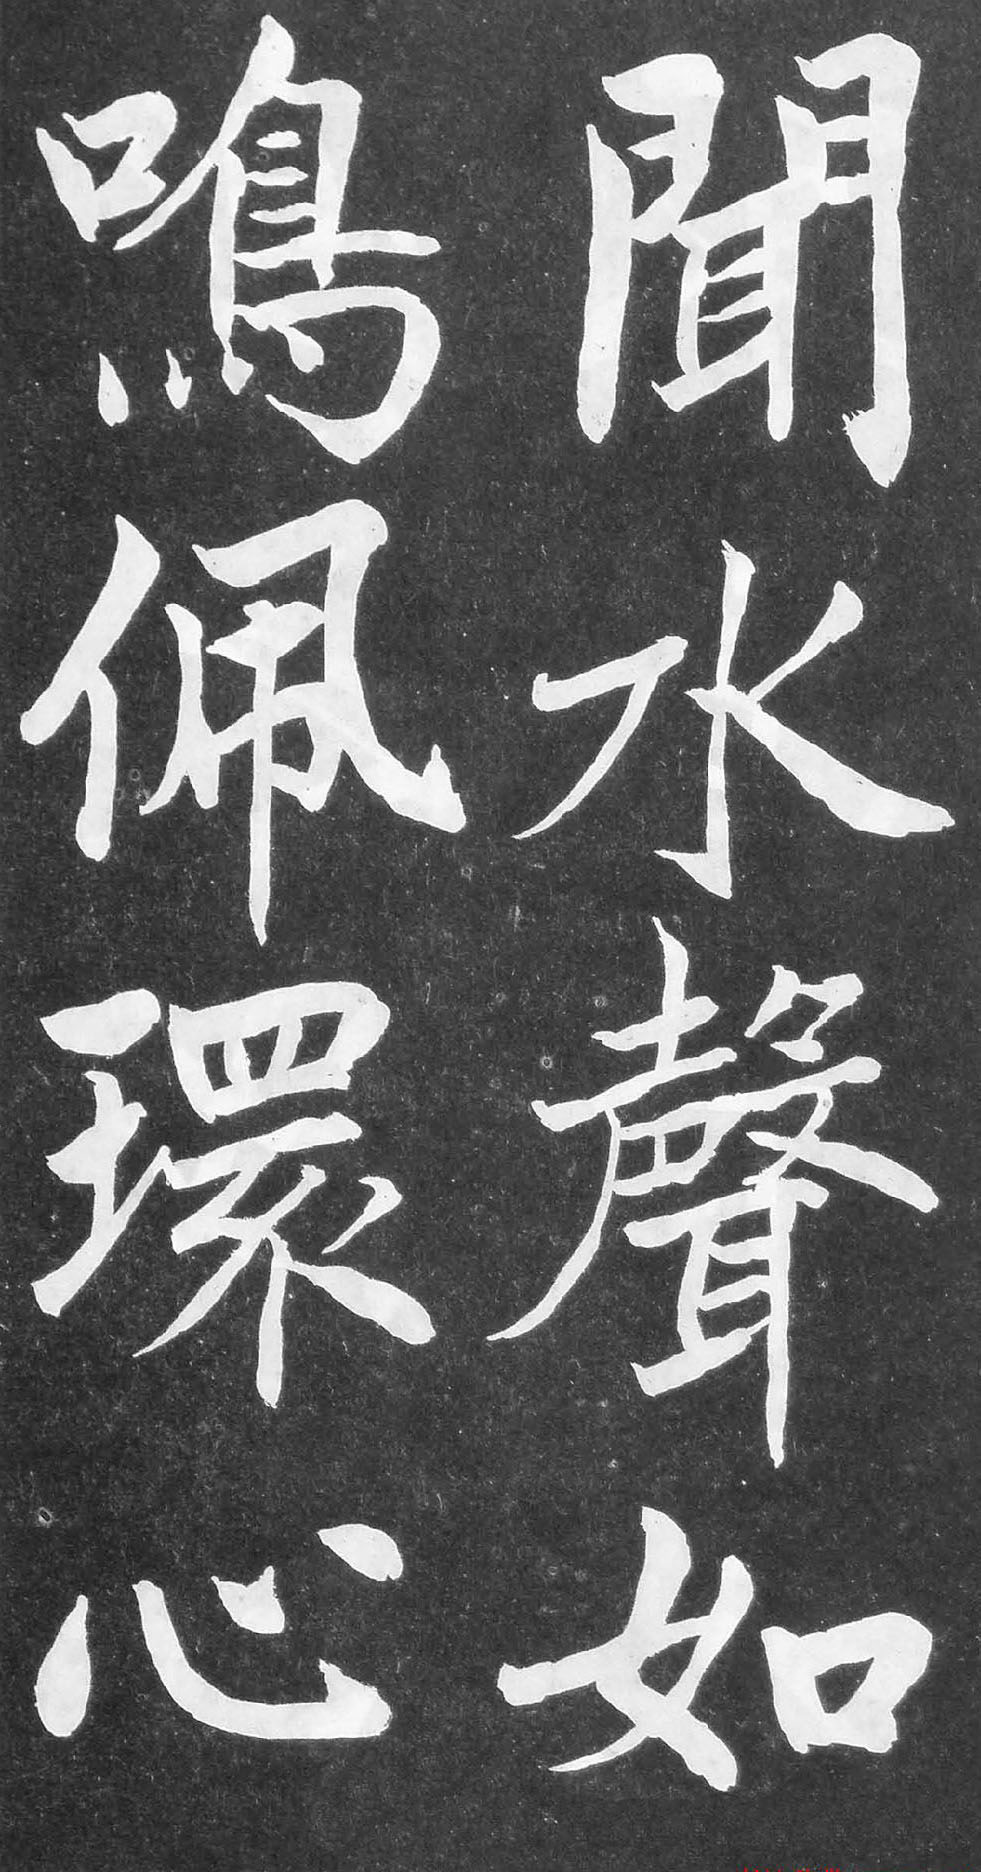 聞水聲如
鳴佩環心